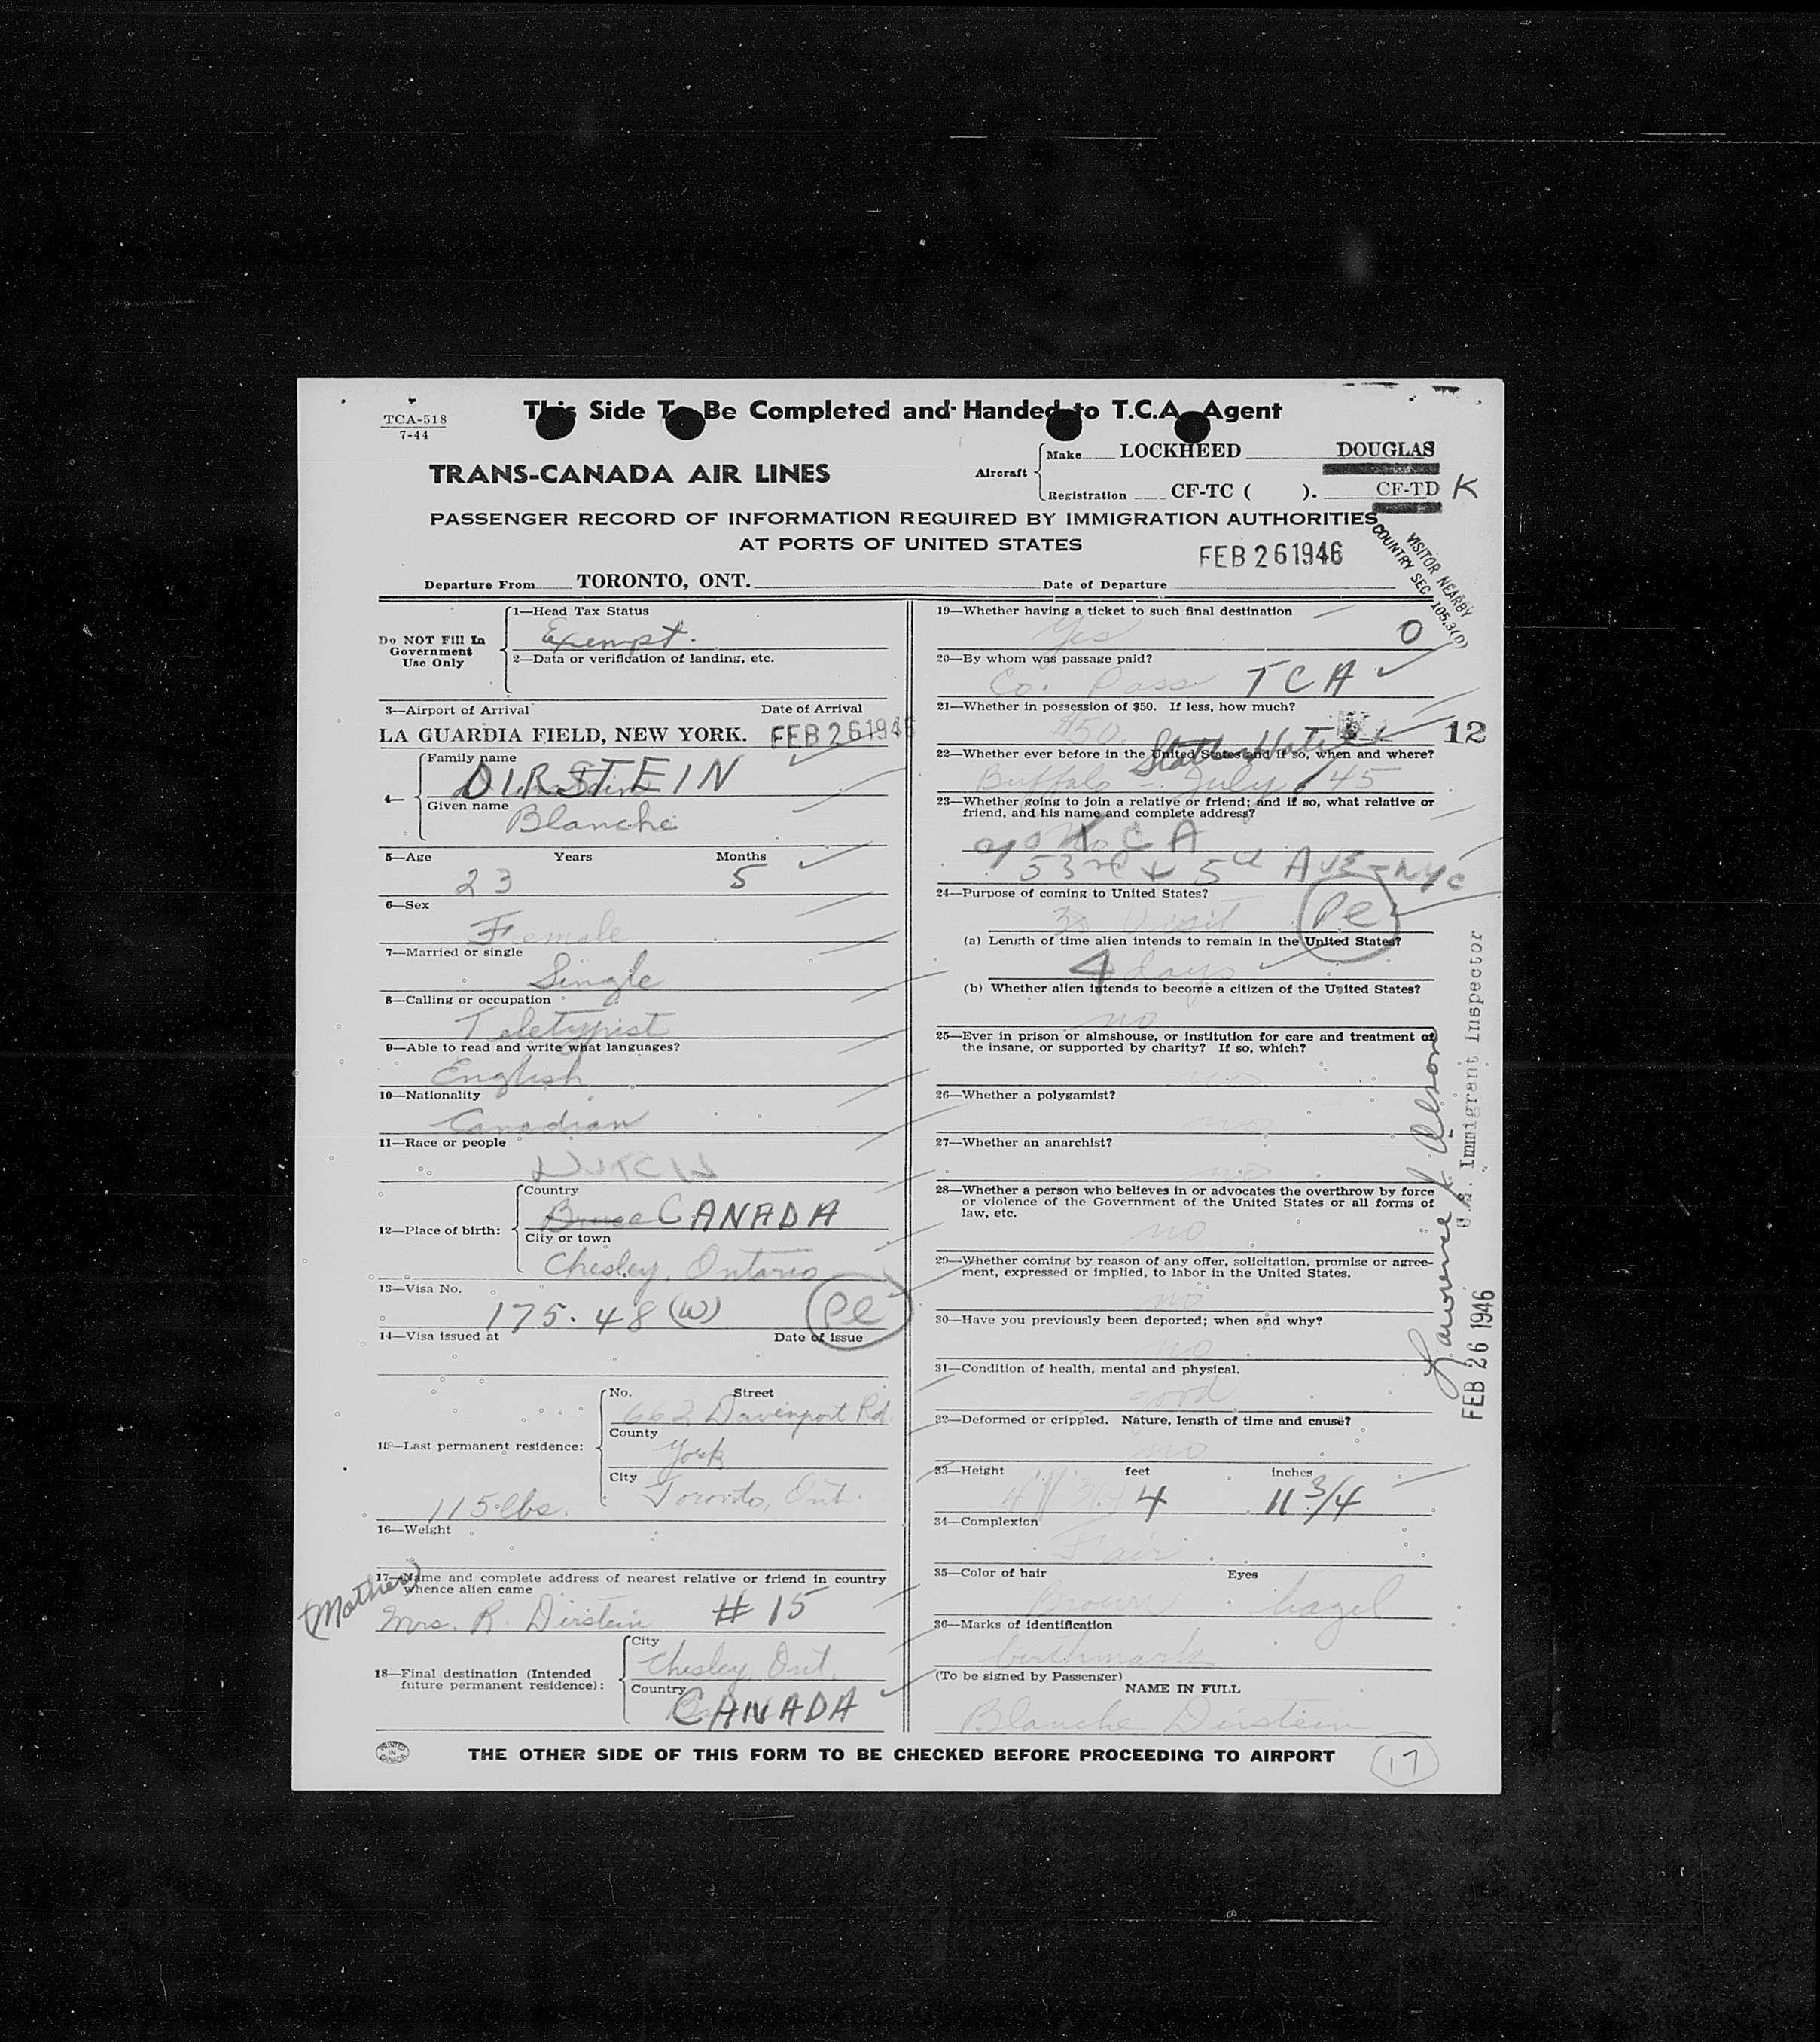 TCA-518
7-44
This Side To Be Completed and Handed to T.C.A. Agent
TRANS-CANADA AIR LINES
Aircraft
Make LOCKHEED DOUGLAS
Registration CF-TC ( ). CF-TD K
PASSENGER RECORD OF INFORMATION REQUIRED BY IMMIGRATION AUTHORITIES
AT PORTS OF UNITED STATES
FEB 26 1946
VISITOR NEARBY
COUNTRY SEC 105.3(D)
Departure From TORONTO, ONT. Date of Departure
Do NOT Fill In
Government
Use Only
1—Head Tax Status
Exempt.
2—Data or verification of landing, etc.
3—Airport of Arrival Date of Arrival
LA GUARDIA FIELD, NEW YORK. FEB 26 1946
4—
Family name
DIRSTEIN
Given name
Blanche
5—Age Years Months
23 5
6—Sex
Female
7—Married or single
Single
8—Calling or occupation
Teletypist
9—Able to read and write what languages?
English
10—Nationality
Canadian
11—Race or people
DUTCH
12—Place of birth:
Country
Bruce CANADA
City or town
Chesley, Ontario
13—Visa No.
175.48 (W) Pe
14—Visa issued at Date of issue
15—Last permanent residence:
No. Street
662 Davenport Rd
County
York
City
Toronto, Ont.
115 lbs.
16—Weight
17—Name and complete address of nearest relative or friend in country
whence alien came
(Mother)
Mrs. R. Dirstein # 15
18—Final destination (Intended
future permanent residence):
City
Chesley, Ont.
Country
CANADA
19—Whether having a ticket to such final destination
Yes O
20—By whom was passage paid?
Co. Pass TCA
21—Whether in possession of $50. If less, how much?
$50. 12
22—Whether ever before in the United States and if so, when and where?
Buffalo - July /45
23—Whether going to join a relative or friend; and if so, what relative or
friend, and his name and complete address?
c/o TCA
53rd + 5th AVE - NYC
24—Purpose of coming to United States?
Visit Pe
(a) Length of time alien intends to remain in the United States?
4 days
(b) Whether alien intends to become a citizen of the United States?
no
25—Ever in prison or almshouse, or institution for care and treatment of
the insane, or supported by charity? If so, which?
no
26—Whether a polygamist?
no
27—Whether an anarchist?
no
28—Whether a person who believes in or advocates the overthrow by force
or violence of the Government of the United States or all forms of
law, etc.
no
29—Whether coming by reason of any offer, solicitation, promise or agree-
ment, expressed or implied, to labor in the United States.
no
30—Have you previously been deported; when and why?
no
31—Condition of health, mental and physical.
good
32—Deformed or crippled. Nature, length of time and cause?
no
33—Height feet inches
4 11 3/4
34—Complexion
Fair
35—Color of hair Eyes
Brown hazel
36—Marks of identification
birthmark
(To be signed by Passenger)
NAME IN FULL
Blanche Dirstein
Immigrant Inspector
FEB 26 1946
PRINTED
IN
CANADA
THE OTHER SIDE OF THIS FORM TO BE CHECKED BEFORE PROCEEDING TO AIRPORT
17